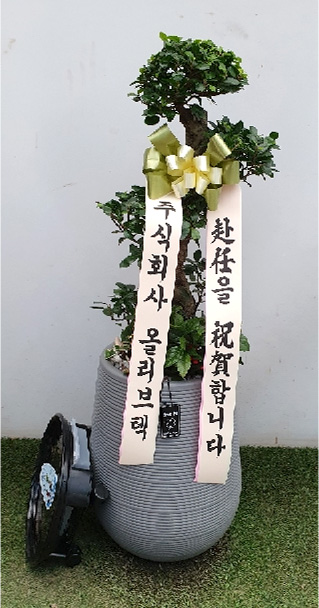 주식회사 올리브텍
赴任을 祝賀합니다